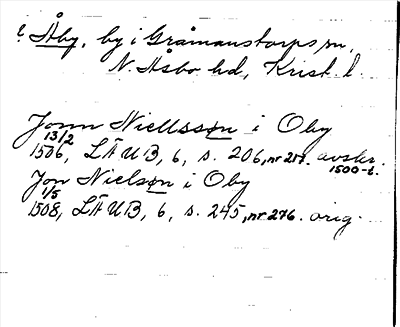 ? Åby, by i Gråmanstorps sn,
N. Åsbo hd, Krist. l.
Jonn Niellsson i Oby
13/2
1506, LÄUB, 6, s. 206, nr 217. avskr.
1500-t.
Jon Nielsøn i Oby
1/5
1508, LÄUB, 6, s. 245, nr 276. orig.